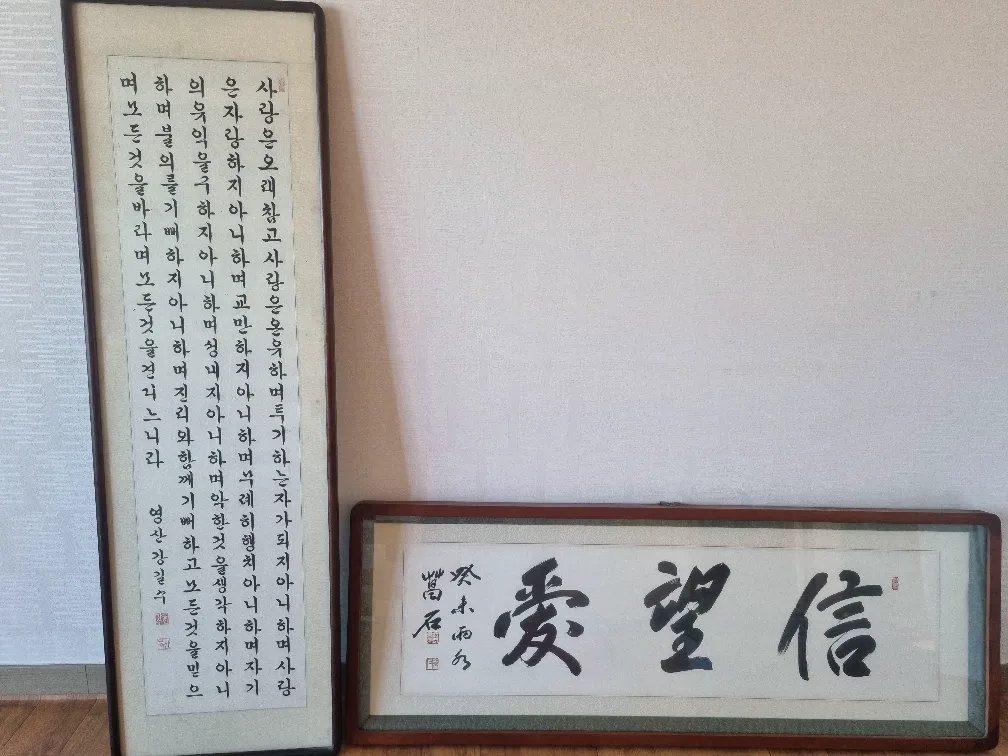 사랑은오래참고사랑은온유하며투기하는자가되지아니하며사랑
은자랑하지아니하며교만하지아니하며무례히행치아니하며자기
의유익을구하지아니하며성내지아니하며악한것을생각하지아니
하며불의를기뻐하지아니하며진리와함께기뻐하고모든것을믿으
며모든것을바라며모든것을견디느니라
영산강길수
信望愛
癸未雨水